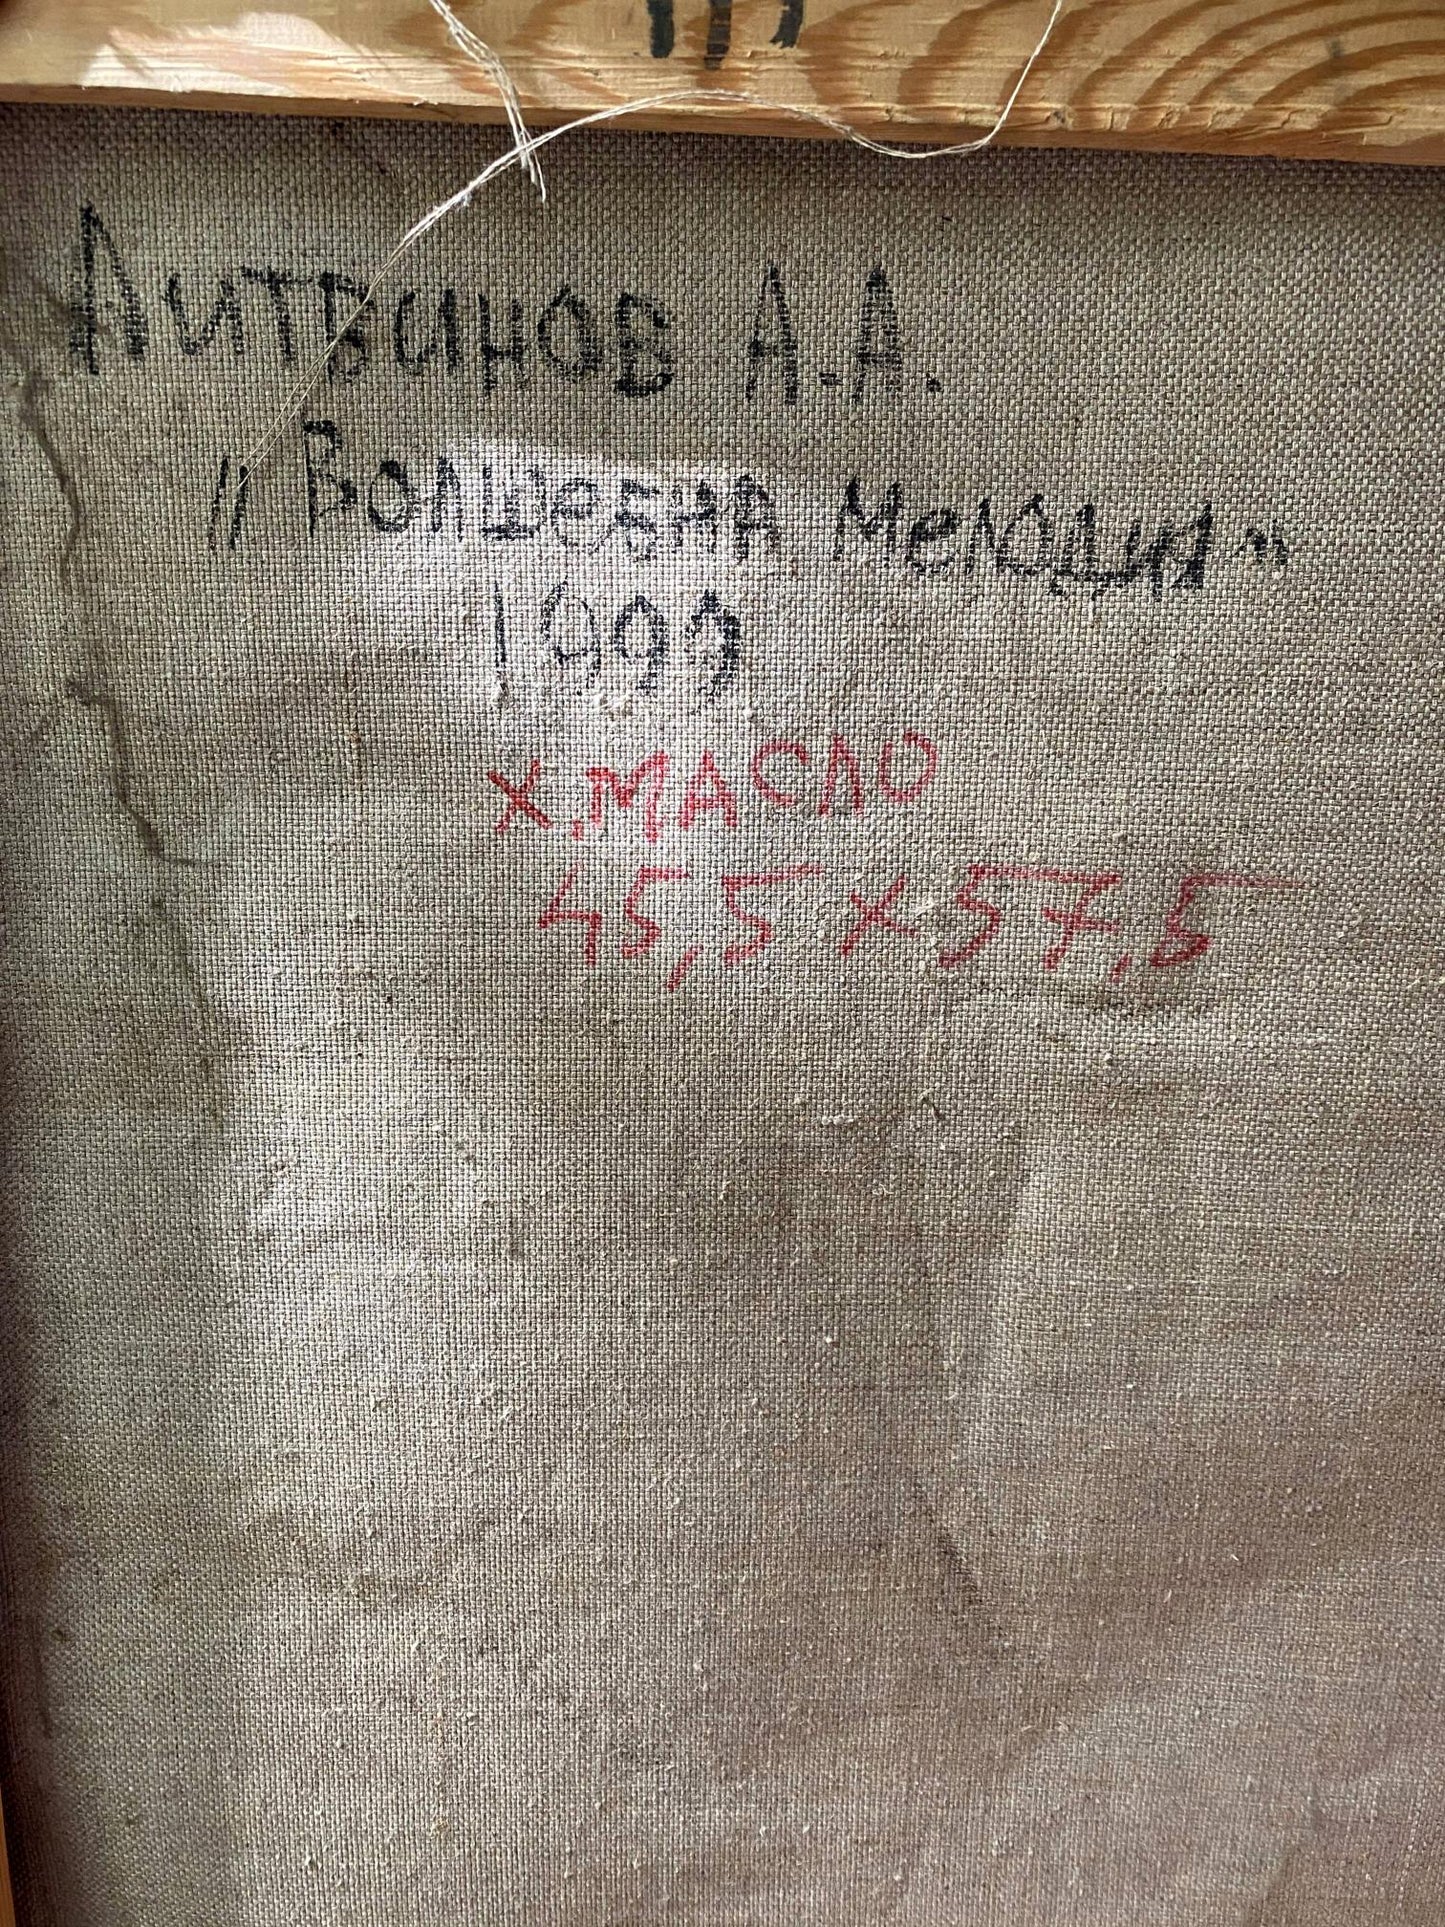 Литвинов А.А.
„Волшебна мелодия"
1999
х.масло
45,5 х 57,5